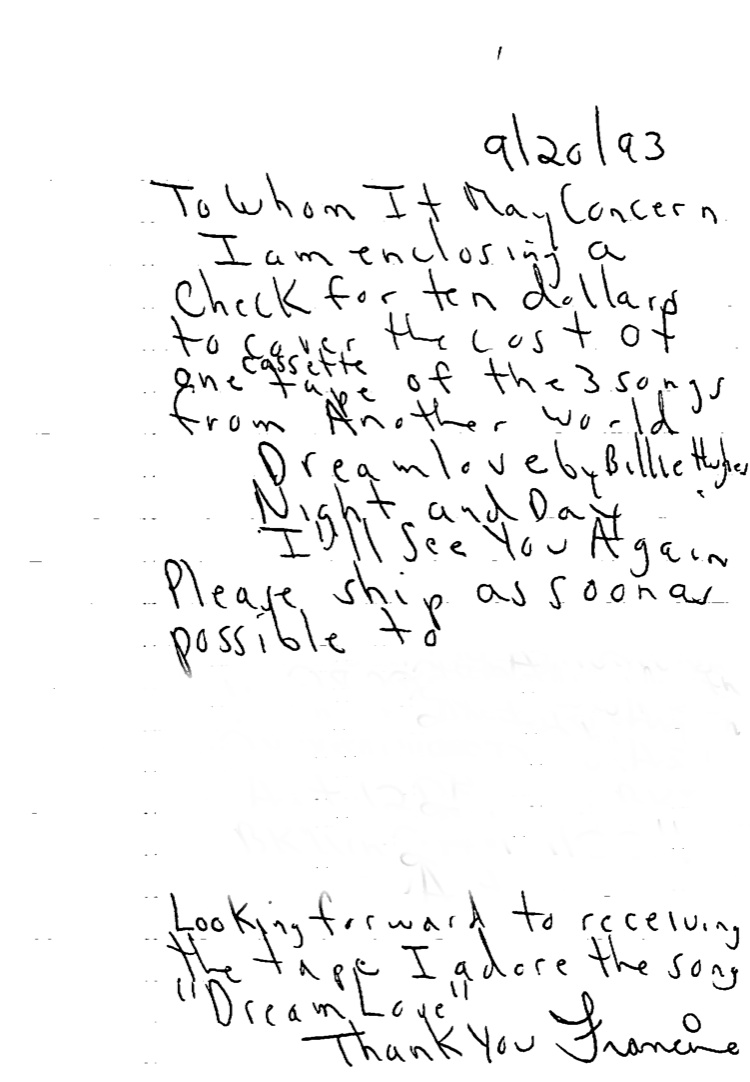 9/20/93
To Whom It May Concern
I am enclosing a
Check for ten dollars
to cover the cost of
one cassette tape of the 3 songs
from Another World
Dreamlove by Billie Hughes
Night and Day
I'll See You Again
Please ship as soon as
possible to
Looking forward to receiving
the tape I adore the song
"Dream Love"
Thank You Francine